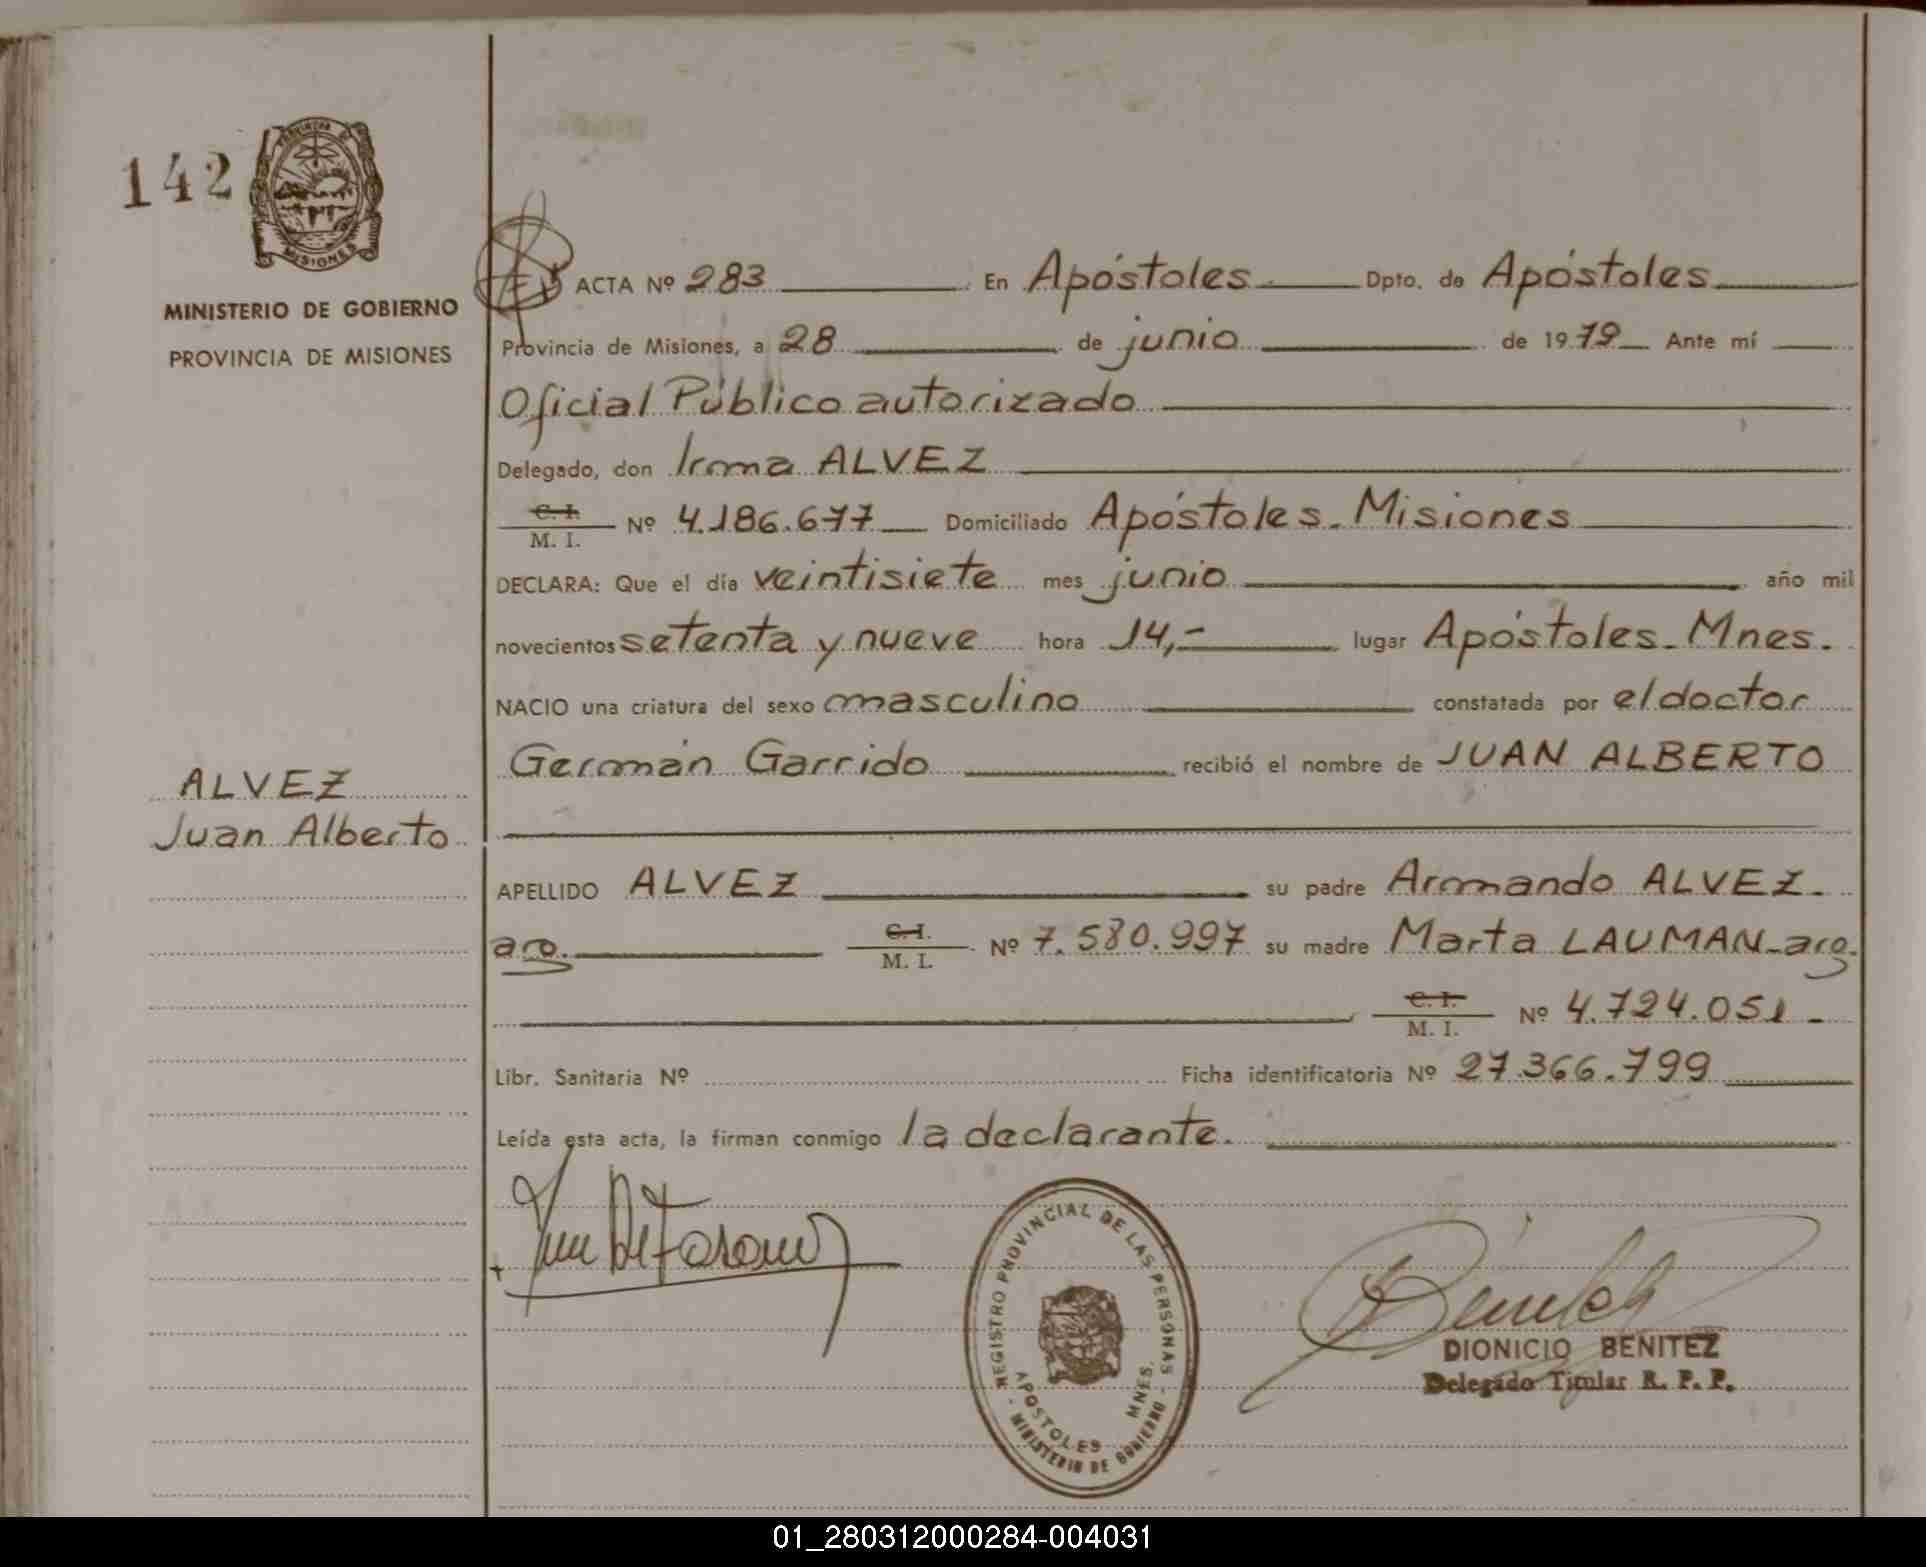 142
PROVINCIA DE
MISIONES
MINISTERIO DE GOBIERNO
PROVINCIA DE MISIONES
ALVEZ
Juan Alberto
ACTA Nº 283 En Apóstoles Dpto. de Apóstoles
Provincia de Misiones, a 28 de junio de 1979 Ante mí
Oficial Público autorizado
Delegado, don Irma ALVEZ
C. I.
M. I. Nº 4.186.677 Domiciliado Apóstoles. Misiones
DECLARA: Que el día veintisiete mes junio año mil
novecientos setenta y nueve hora 14,- lugar Apóstoles. Mnes.
NACIO una criatura del sexo masculino constatada por el doctor
Germán Garrido recibió el nombre de JUAN ALBERTO
APELLIDO ALVEZ su padre Armando ALVEZ.
arg. C. I. M. I. Nº 7.580.997 su madre Marta LAUMAN-arg.
C. I. M. I. Nº 4.724.051 -
Libr. Sanitaria Nº Ficha identificatoria Nº 27.366.799
Leída esta acta, la firman conmigo la declarante.
REGISTRO PROVINCIAL DE LAS PERSONAS
APOSTOLES MNES.
- MINISTERIO DE GOBIERNO -
DIONICIO BENITEZ
Delegado Titular R. P. P.
01_280312000284-004031